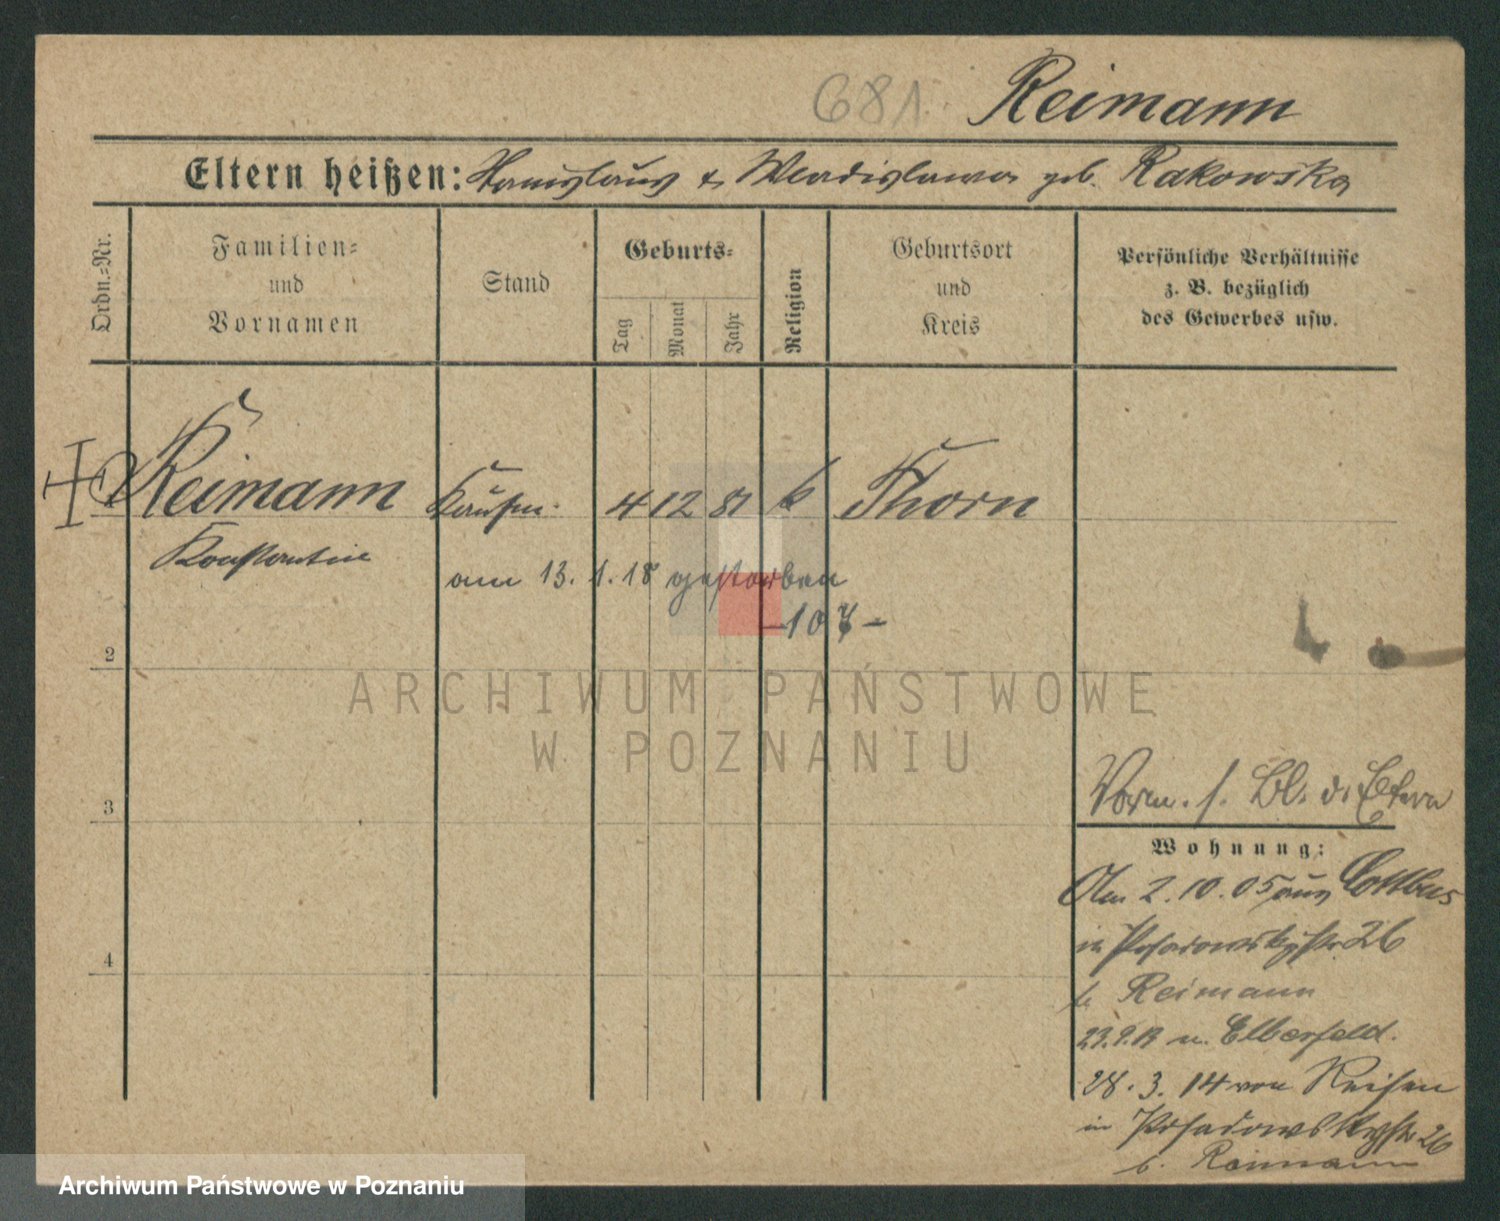 681. Reimann
Eltern heißen: Stanislaus & Wladislawa geb. Rakowska
Ordn.-Nr.
Familien-
und
Vornamen
Stand
Geburts-
Tag
Monat
Jahr
Religion
Geburtsort
und
Kreis
Persönliche Verhältnisse
z. B. bezüglich
des Gewerbes usw.
Reimann Kaufm. 4 12 81 k Thorn
Konstantin
am 13. 1. 18 gestorben
-107-
2
ARCHIWUM PAŃSTWOWE
W POZNANIU
3
Vorm. s. Bl. d. Eltern
Wohnung:
Am 2. 10. 05 aus Cottbus
in Posadowskystr. 26
b. Reimann
4
23.9.13 n. Elberfeld.
28. 3. 14 von Reisen
in Posadowskystr 26
b. Reimann
Archiwum Państwowe w Poznaniu